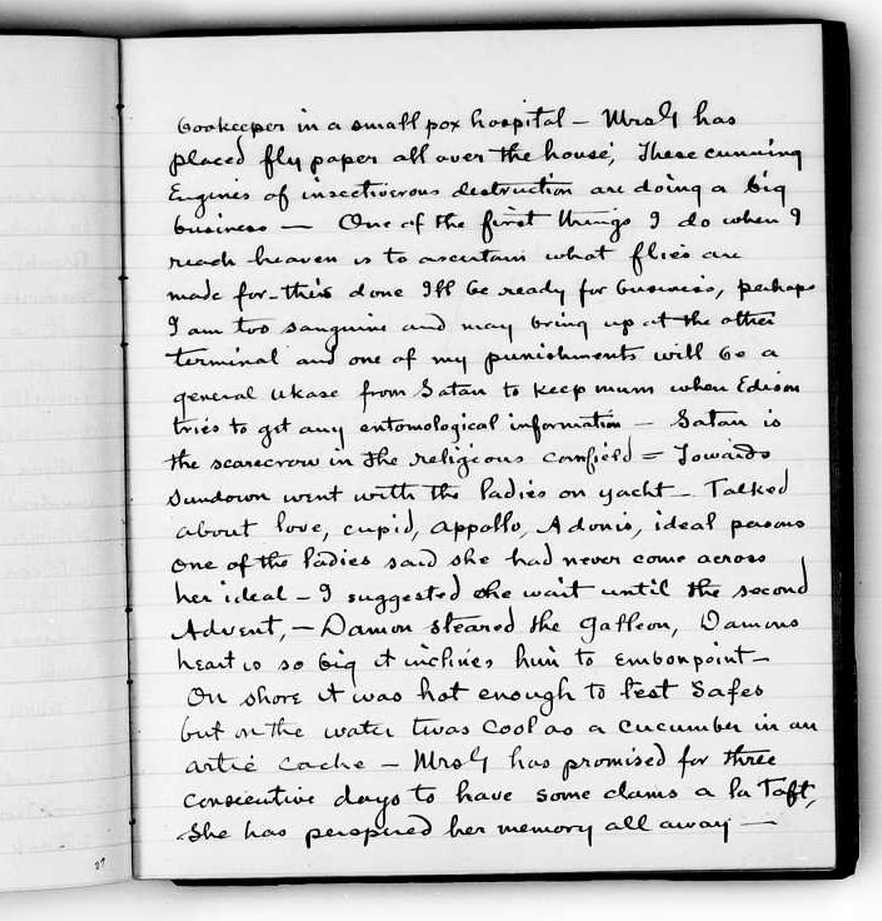 bookeeper in a small pox hospital — Mrs G has
placed fly paper all over the house, These cunning
Engines of insectiverous destruction are doing a big
business — One of the first things I do when I
reach heaven is to ascertain what flies are
made for - this done Ill be ready for business, perhaps
I am too sanguine and may bring up at the other
terminal and one of my punishments will be a
general ukase from Satan to keep mum when Edison
tries to get any entomological information — Satan is
the scarecrow in the religious cornfield = Towards
Sundown went with the ladies on yacht — Talked
about love, cupid, Appollo, Adonis, ideal persons
one of the ladies said she had never come across
her ideal - I suggested she wait until the second
Advent, — Damon steared the galleon, Damons
heart is so big it inclines him to embonpoint —
On shore it was hot enough to test Safes
but on the water twas cool as a cucumber in an
artic cache — Mrs G has promised for three
consecutive days to have some clams a la Taft,
She has perspired her memory all away —
27